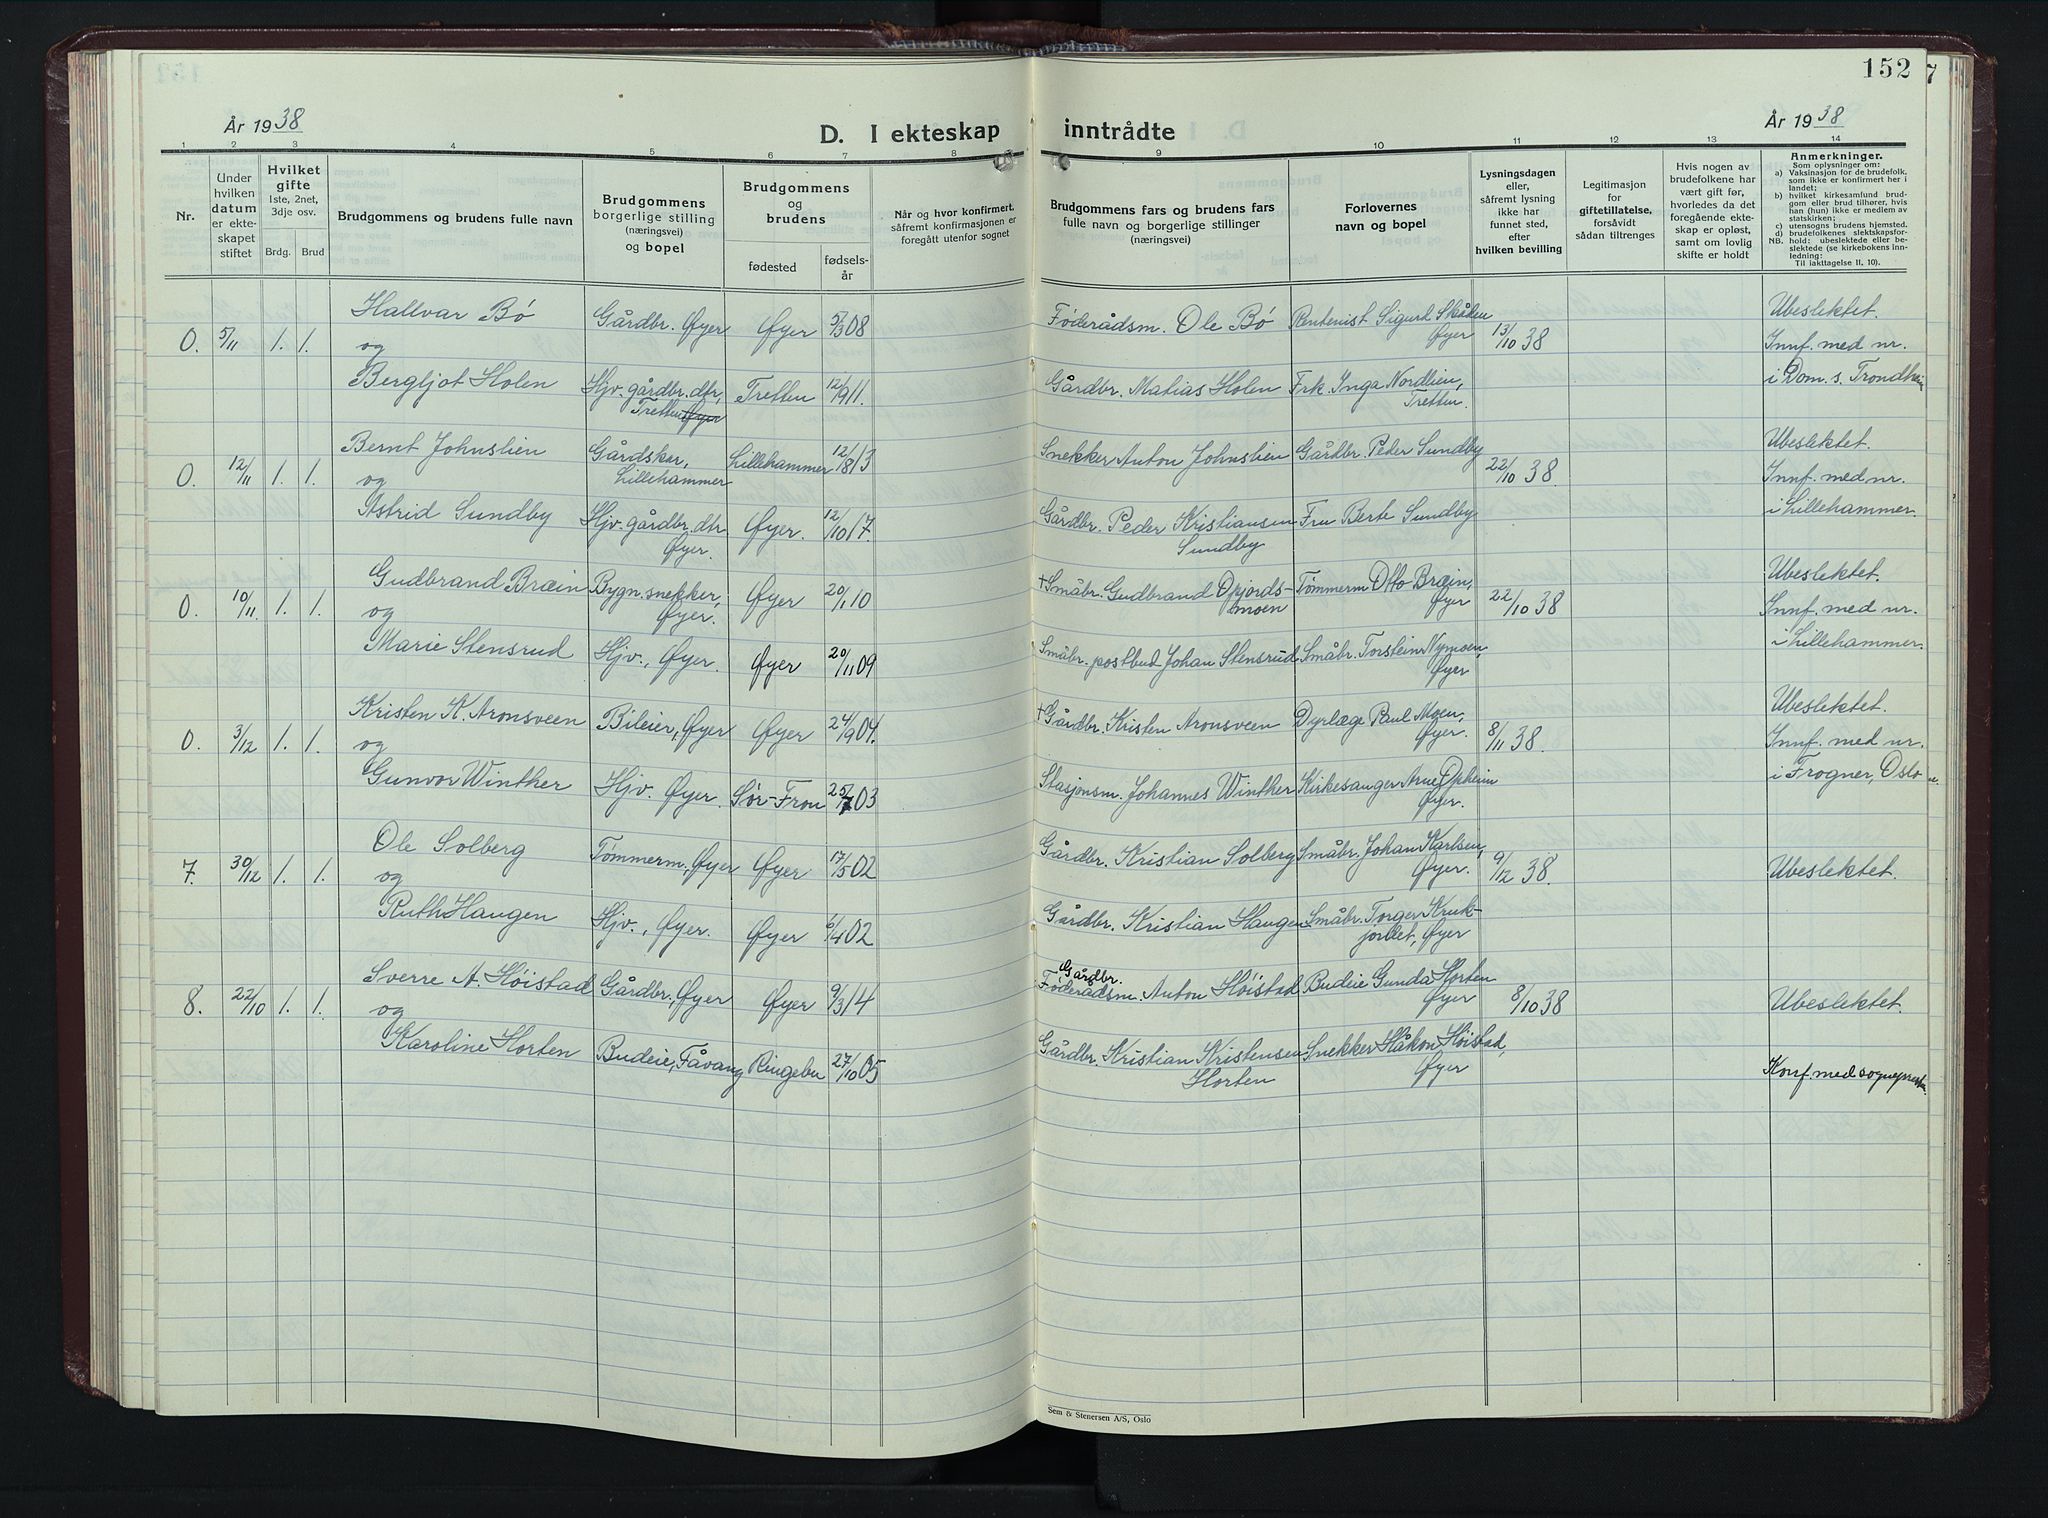 152
7
År 1938
D. I ekteskap inntrådte
År 1938
1 2 3 4 5 6 7 8 9 10 11 12 13 14
Nr.
Under hvilken datum er ekteskapet stiftet
Hvilket gifte 1ste, 2net, 3dje osv.
Brdg. Brud
Brudgommens og brudens fulle navn
Brudgommens borgerlige stilling (næringsvei) og bopel
Brudgommens og brudens
fødested
fødselsår
Når og hvor konfirmert, såfremt konfirmasjonen er foregått utenfor sognet
Brudgommens fars og brudens fars fulle navn og borgerlige stillinger (næringsvei)
Forlovernes navn og bopel
Lysningsdagen eller, såfremt lysning ikke har funnet sted, efter hvilken bevilling
Legitimasjon for giftetillatelse, forsåvidt sådan tiltrenges
Hvis nogen av brudefolkene har vært gift før, hvorledes da det foregående ekteskap er opløst, samt om lovlig skifte er holdt
Anmerkninger.
Som oplysninger om:
a) Vaksinasjon for de brudefolk, som ikke er konfirmert her i landet;
b) hvilket kirkesamfund brudgom eller brud tilhører, hvis han (hun) ikke er medlem av statskirken;
c) utensogns brudens hjemsted.
d) brudefolkenes slektskapsforhold: ubeslektede eller beslektede (se kirkebokens innledning:
NB. Til iakttagelse II, 10).
0. 5/11 1. 1. Hallvar Bö Gårdbr. Øyer Øyer 5/3 08 Föderådsm. Ole Bö Rentenist Sigurd Skåden Øyer 13/10 38 Ubeslektet.
og Innf. med nr.
Bergljot Holen Hjv. gårdbr. dtr, Tretten Øyer Tretten 12/9 11. Gårdbr. Matias Holen Frk. Inga Nordlien, Tretten. i Dom. s. Trondheim
0. 12/11 1. 1. Bernt Johnslien Gårdsker, Lillehammer Lillehammer 12/8 13 Snekker Anton Johnslien Gårdbr. Peder Sundby 22/10 38. Ubeslektet.
og Innf. med nr.
Astrid Sundby Hjv. gårdbr. dtr, Øyer. Øyer. 12/10 17. Gårdbr. Peder Kristiansen Sundby Fru Berte Sundby i Lillehammer.
0. 10/11 1. 1. Gudbrand Bræin Bygn. snekker, Øyer. Øyer 20/1 10 † Småbr. Gudbrand Opjordsmoen Tømmerm Otto Bræin, Øyer 22/10 38 Ubeslektet.
og Innf. med nr.
Marie Stensrud Hjv., Øyer. Øyer 20/11 09 Småbr. postbud Johan Stensrud Småbr. Torstein Nymoen, Øyer i Lillehammer.
0. 3/12 1. 1. Kristen K. Aronsveen Bileier, Øyer Øyer 24/9 04. † Gårdbr. Kristen Aronsveen Dyrlæge Paul Moen, Øyer. 8/11 38. Ubeslektet.
og Innf. med nr.
Gunvor Winther Hjv. Øyer. Sør-Fron 25/7 03 Stasjonsm. Johannes Winther Kirkesanger Arne Opheim Øyer. i Frogner, Oslo
7. 30/12 1. 1. Ole Solberg Tømmerm, Øyer Øyer 17/5 02 Gårdbr. Kristian Solberg Småbr. Johan Karlsen, Øyer. 9/12 38. Ubeslektet.
og
Ruth Haugen Hjv., Øyer. Øyer 6/4 02 Gårdbr. Kristian Haugen Småbr. Torger Krukjordet, Øyer
8. 22/10 1. 1. Sverre A. Höistad Gårdbr, Øyer Øyer 9/3 14 Gårdbr. Föderådsm. Anton Höistad Budeie Gunda Horten Øyer 8/10 38 Ubeslektet.
og
Karoline Horten Budeie, Fåvang Ringebu 27/10 05 Gårdbr. Kristian Kristensen Horten Snekker Håkon Höistad, Øyer
Konf. med sognepresten.
Sem & Stenersen A/S, Oslo